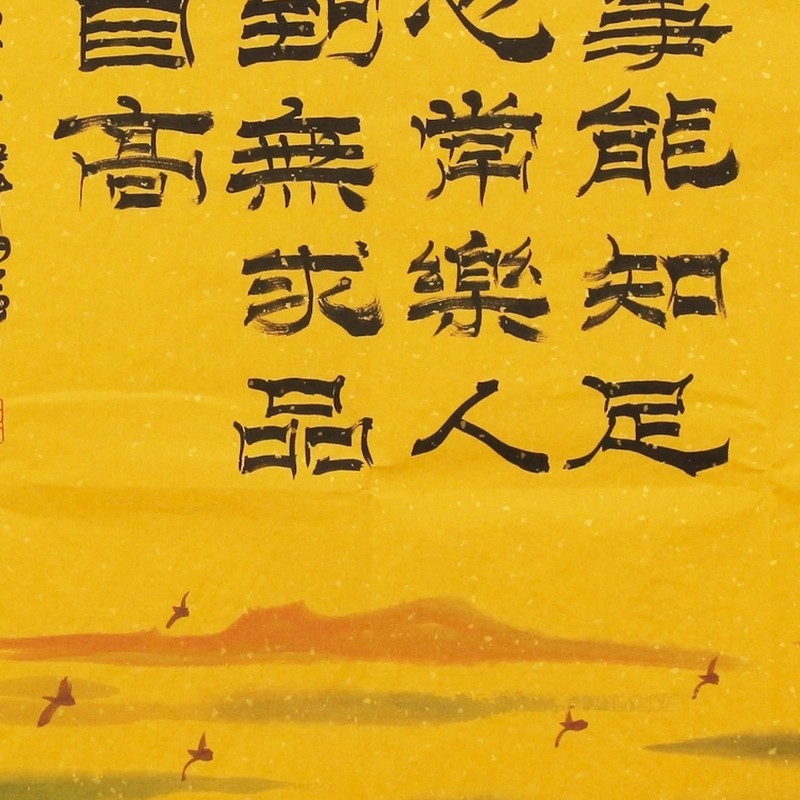 事能知足
心常樂人
到無求品
自高